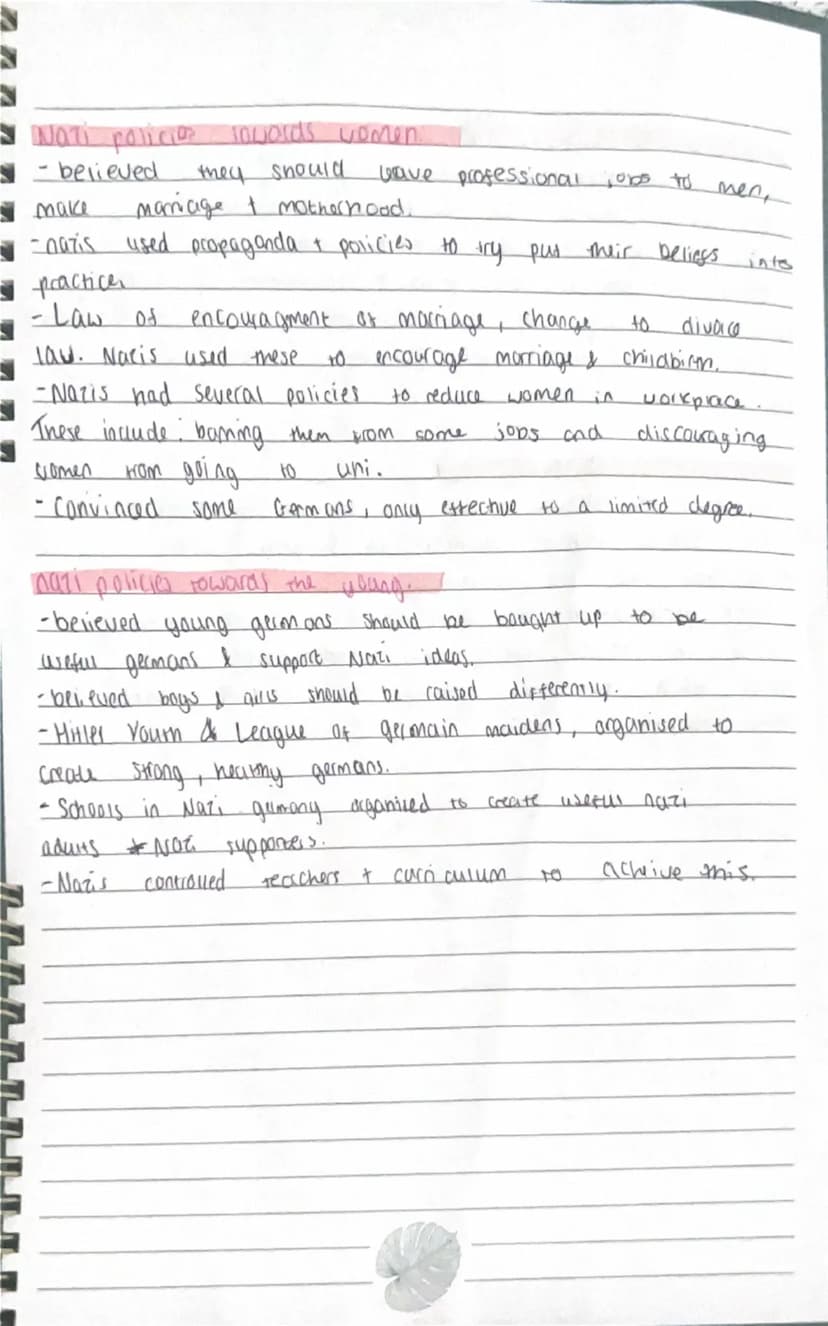 Nazi policies towards women.
- believed they should leave professional jobs to men,
make marriage + motherhood.
- nazis used propaganda + policies to try put their beliefs into
practice.
- Law of encouragment of marriage, change to divorce
law. Nazis used these to encourage marriage & childbirth.
- Nazis had several policies to reduce women in workplace.
These include: banning them from some jobs and discouraging
women from going to uni.
- Convinced some Germans, only effective to a limited degree.
nazi policies towards the young.
- believed young germans should be bought up to be
useful germans & support Nazi ideas.
- believed boys & girls should be raised differently.
- Hitler Youth & League of germain maidens, organised to
create strong, healthy germans.
- Schools in Nazi gumany organised to create useful nazi
adults + Nazi supporters.
- Nazis controlled teachers + curriculum to achive this.